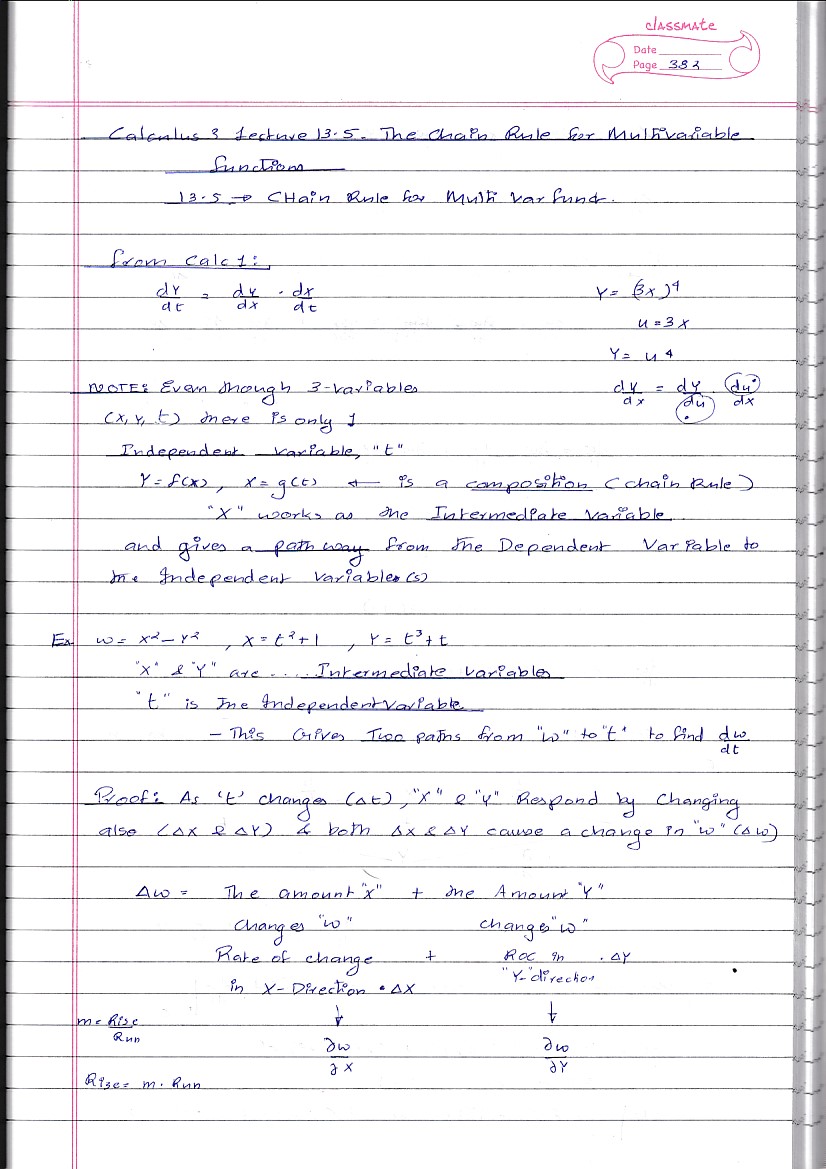 classmate
Date
Page 382
Calculus 3 Lecture 13.5 - The Chain Rule for Multivariable
functions
13.5 → CHain Rule for Multi Var Funct.
from Calc 1:
dY/dt = dy/dx · dx/dt
Y = (3x)^4
u = 3x
Y = u^4
NOTE: Even though 3-variables
dy/dx = dy/du · du/dx
(x, y, t) there is only 1
Independent variable, "t"
Y = f(x), x = g(t) ← is a composition (chain Rule)
"X" works as the Intermediate Variable
and gives a path way from the Dependent Variable to
the Independent Variable(s)
Ex w = x² - Y², X = t² + 1, Y = t³ + t
"X" & "Y" are .... Intermediate variables
"t" is the Independent Variable
- This Gives Two paths from "w" to "t" to find dw/dt
Proof: As 't' changes (Δt), "X" & "Y" Respond by changing
also (ΔX & ΔY) & both ΔX & ΔY cause a change in "w" (Δw)
Δw = The amount "x" + the Amount "Y"
changes "w" changes "w"
Rate of change + ROC in · ΔY
in X-Direction · ΔX "Y-"direction
m = Rise/Run ↓ ↓
∂w/∂X ∂w/∂Y
Rise = m · Run